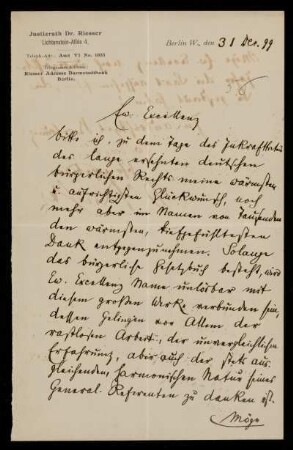 Justizrath Dr. Riesser
Berlin W., den 31 Dez. 99
Berlin.
Ew. Excellenz
bitte ich, zu dem Tage des Inkrafttretens
des lange ersehnten deutschen
bürgerlichen Rechts meine wärmsten
u. aufrichtigsten Glückwünsche, noch
mehr aber im Namen von Tausenden
den wärmsten, tiefgefühltesten
Dank entgegenzunehmen. Solange
das bürgerliche Gesetzbuch besteht, wird
Ew. Excellenz Name unlösbar mit
diesem großen Werke verbunden sein,
dessen Gelingen vor Allem der
rastlosen Arbeit, der unvergleichlichen
Erfahrung, aber auch der stets aus-
gleichenden, harmonischen Natur seines
General-Referenten zu danken ist.
Möge